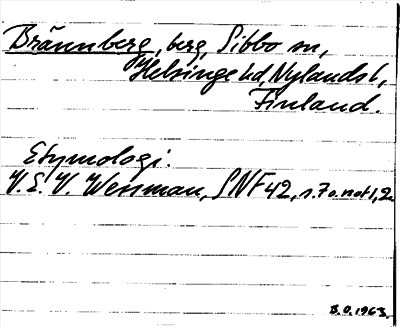 Brännberg, berg, Sibbo sn,
Helsinge hd, Nylands l,
Finland.
Etymologi:
V. E. V. Wessman, SNF 42, s. 70. not 1, 2.
B.O. 1963.